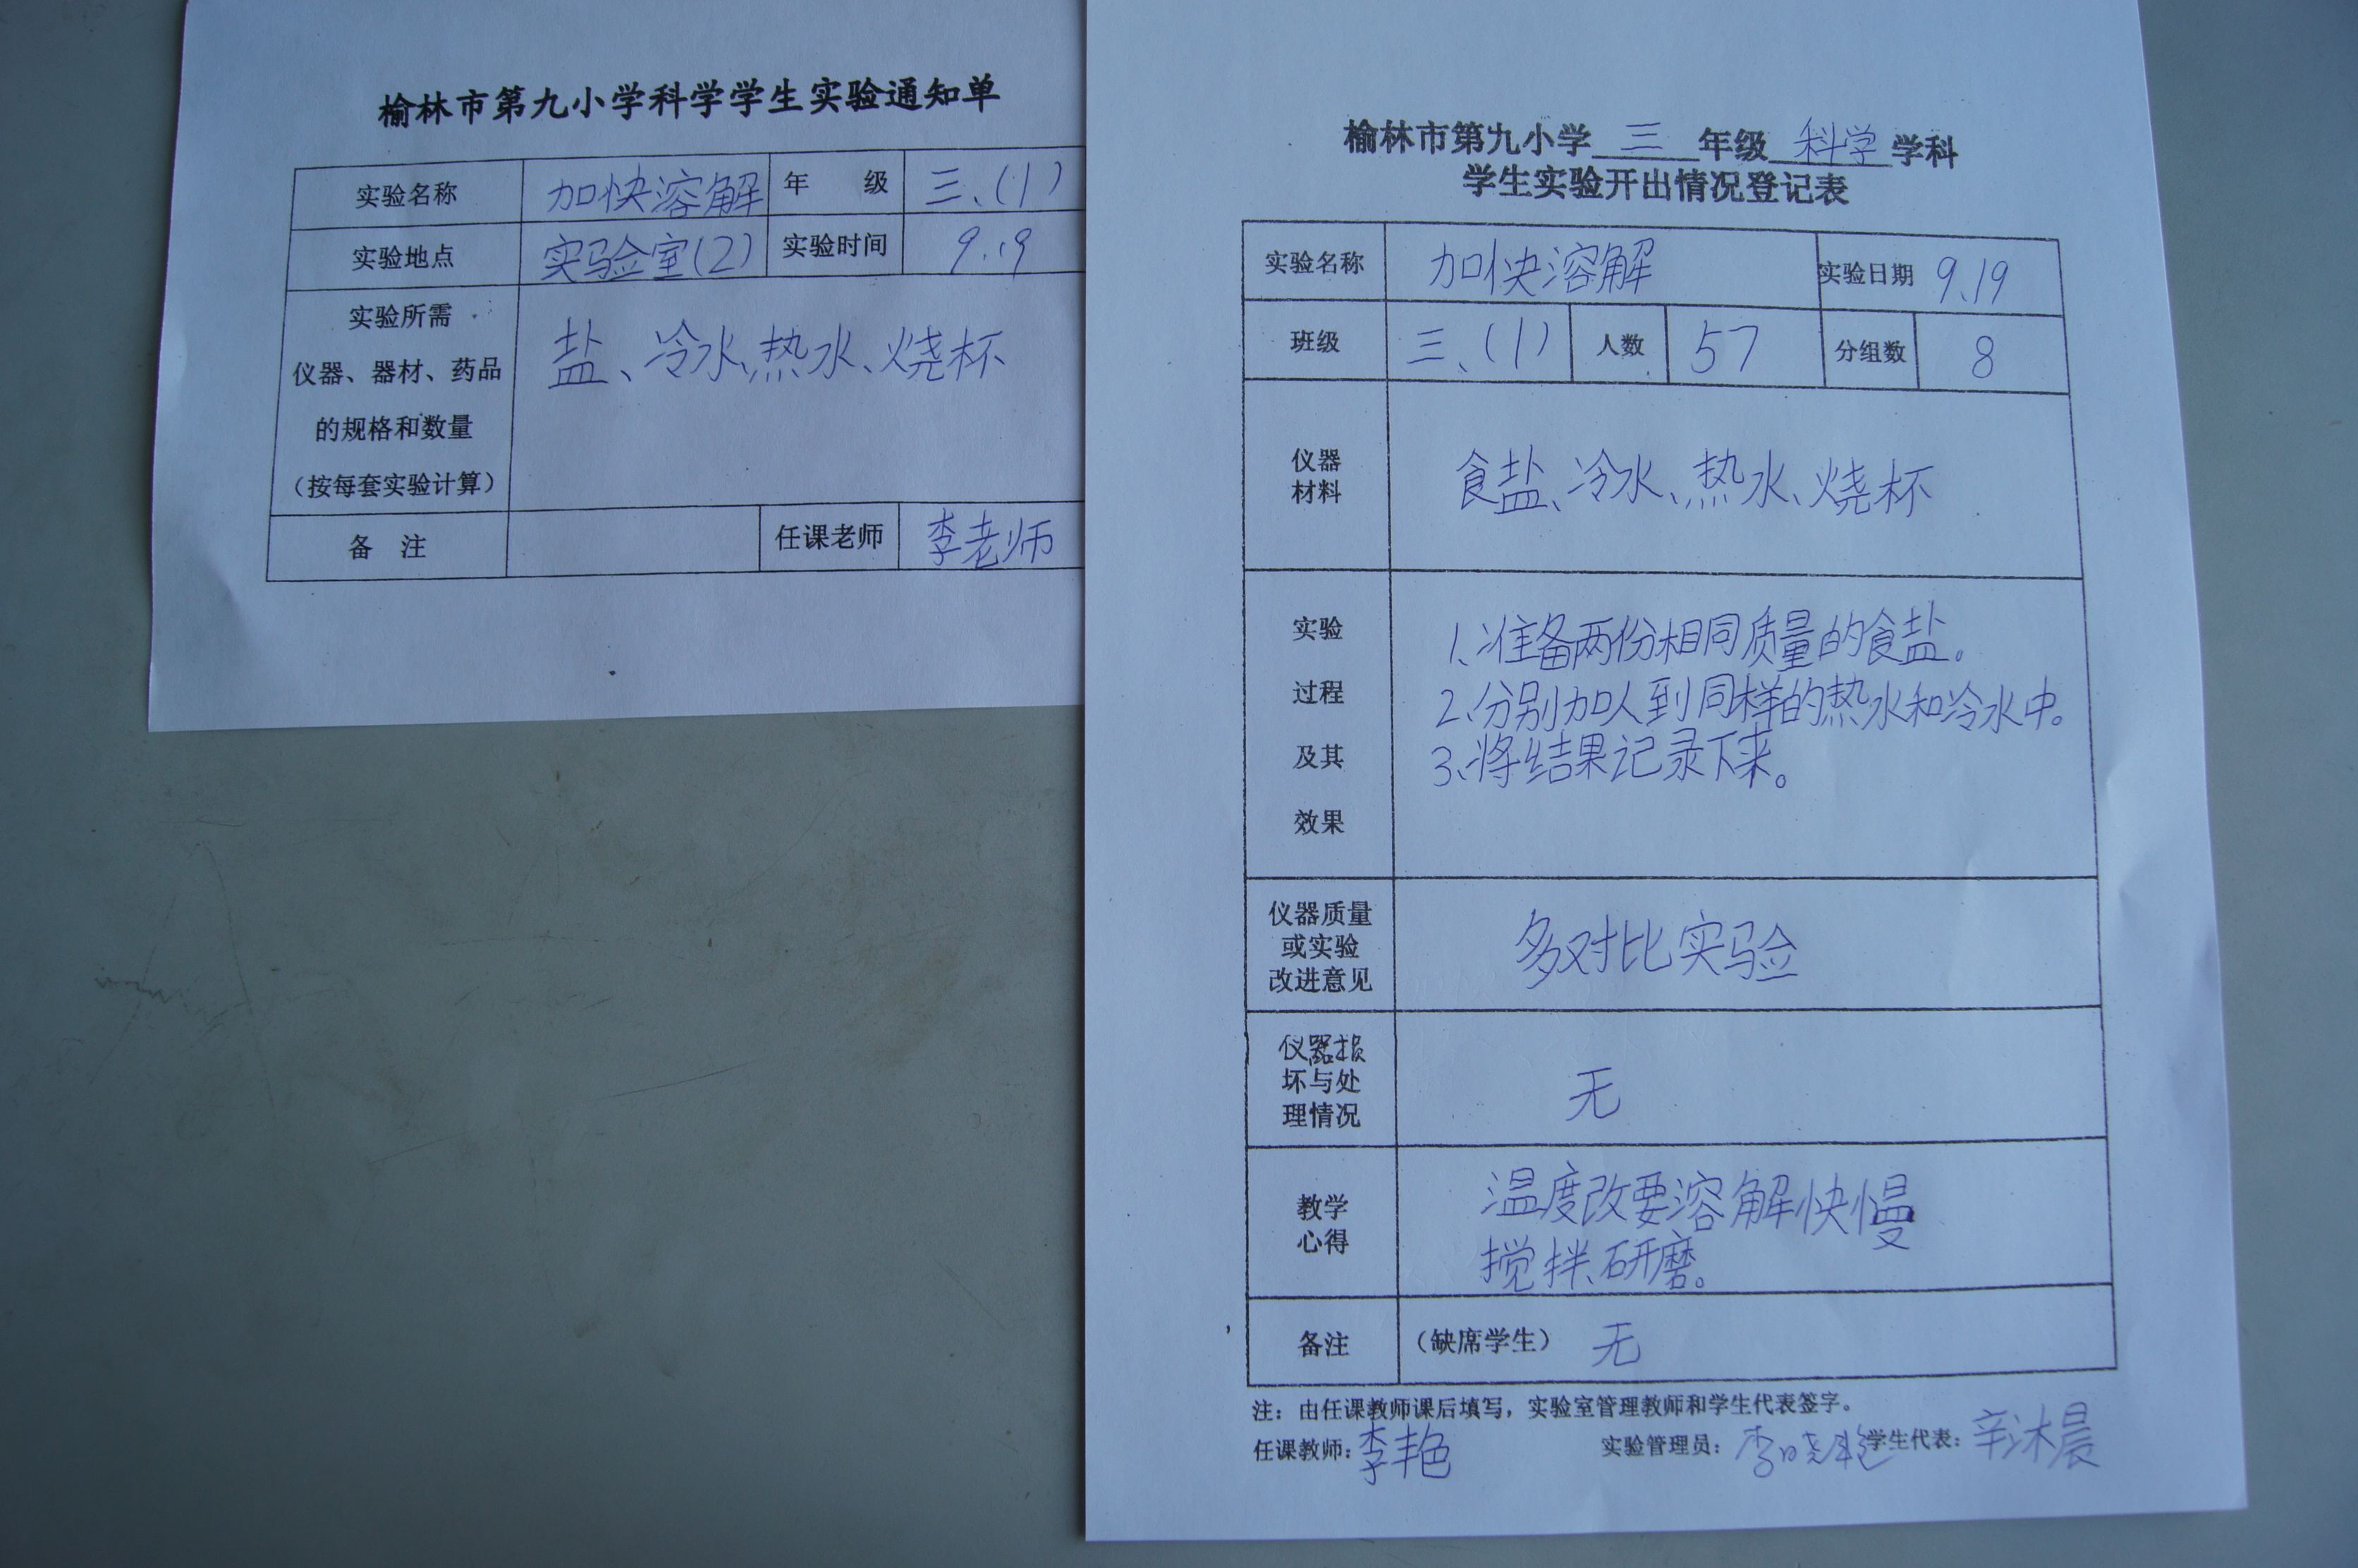 榆林市第九小学科学学生实验通知单
实验名称 加快溶解 年 级 三、(1)
实验地点 实验室(2) 实验时间 9.19
实验所需
仪器、器材、药品
的规格和数量
(按每套实验计算)
盐、冷水、热水、烧杯
备 注 任课老师 李老师
榆林市第九小学 三 年级 科学 学科
学生实验开出情况登记表
实验名称 加快溶解 实验日期 9.19
班级 三、(1) 人数 57 分组数 8
仪器
材料
食盐、冷水、热水、烧杯
实验
过程
及其
效果
1、准备两份相同质量的食盐。
2、分别加人到同样的热水和冷水中。
3、将结果记录下来。
仪器质量
或实验
改进意见
多对比实验
仪器损
坏与处
理情况
无
教学
心得
温度改要溶解快慢
搅拌、研磨。
备注 (缺席学生) 无
注：由任课教师课后填写，实验室管理教师和学生代表签字。
任课教师：李艳 实验管理员：李晓艳 学生代表：辛沐晨